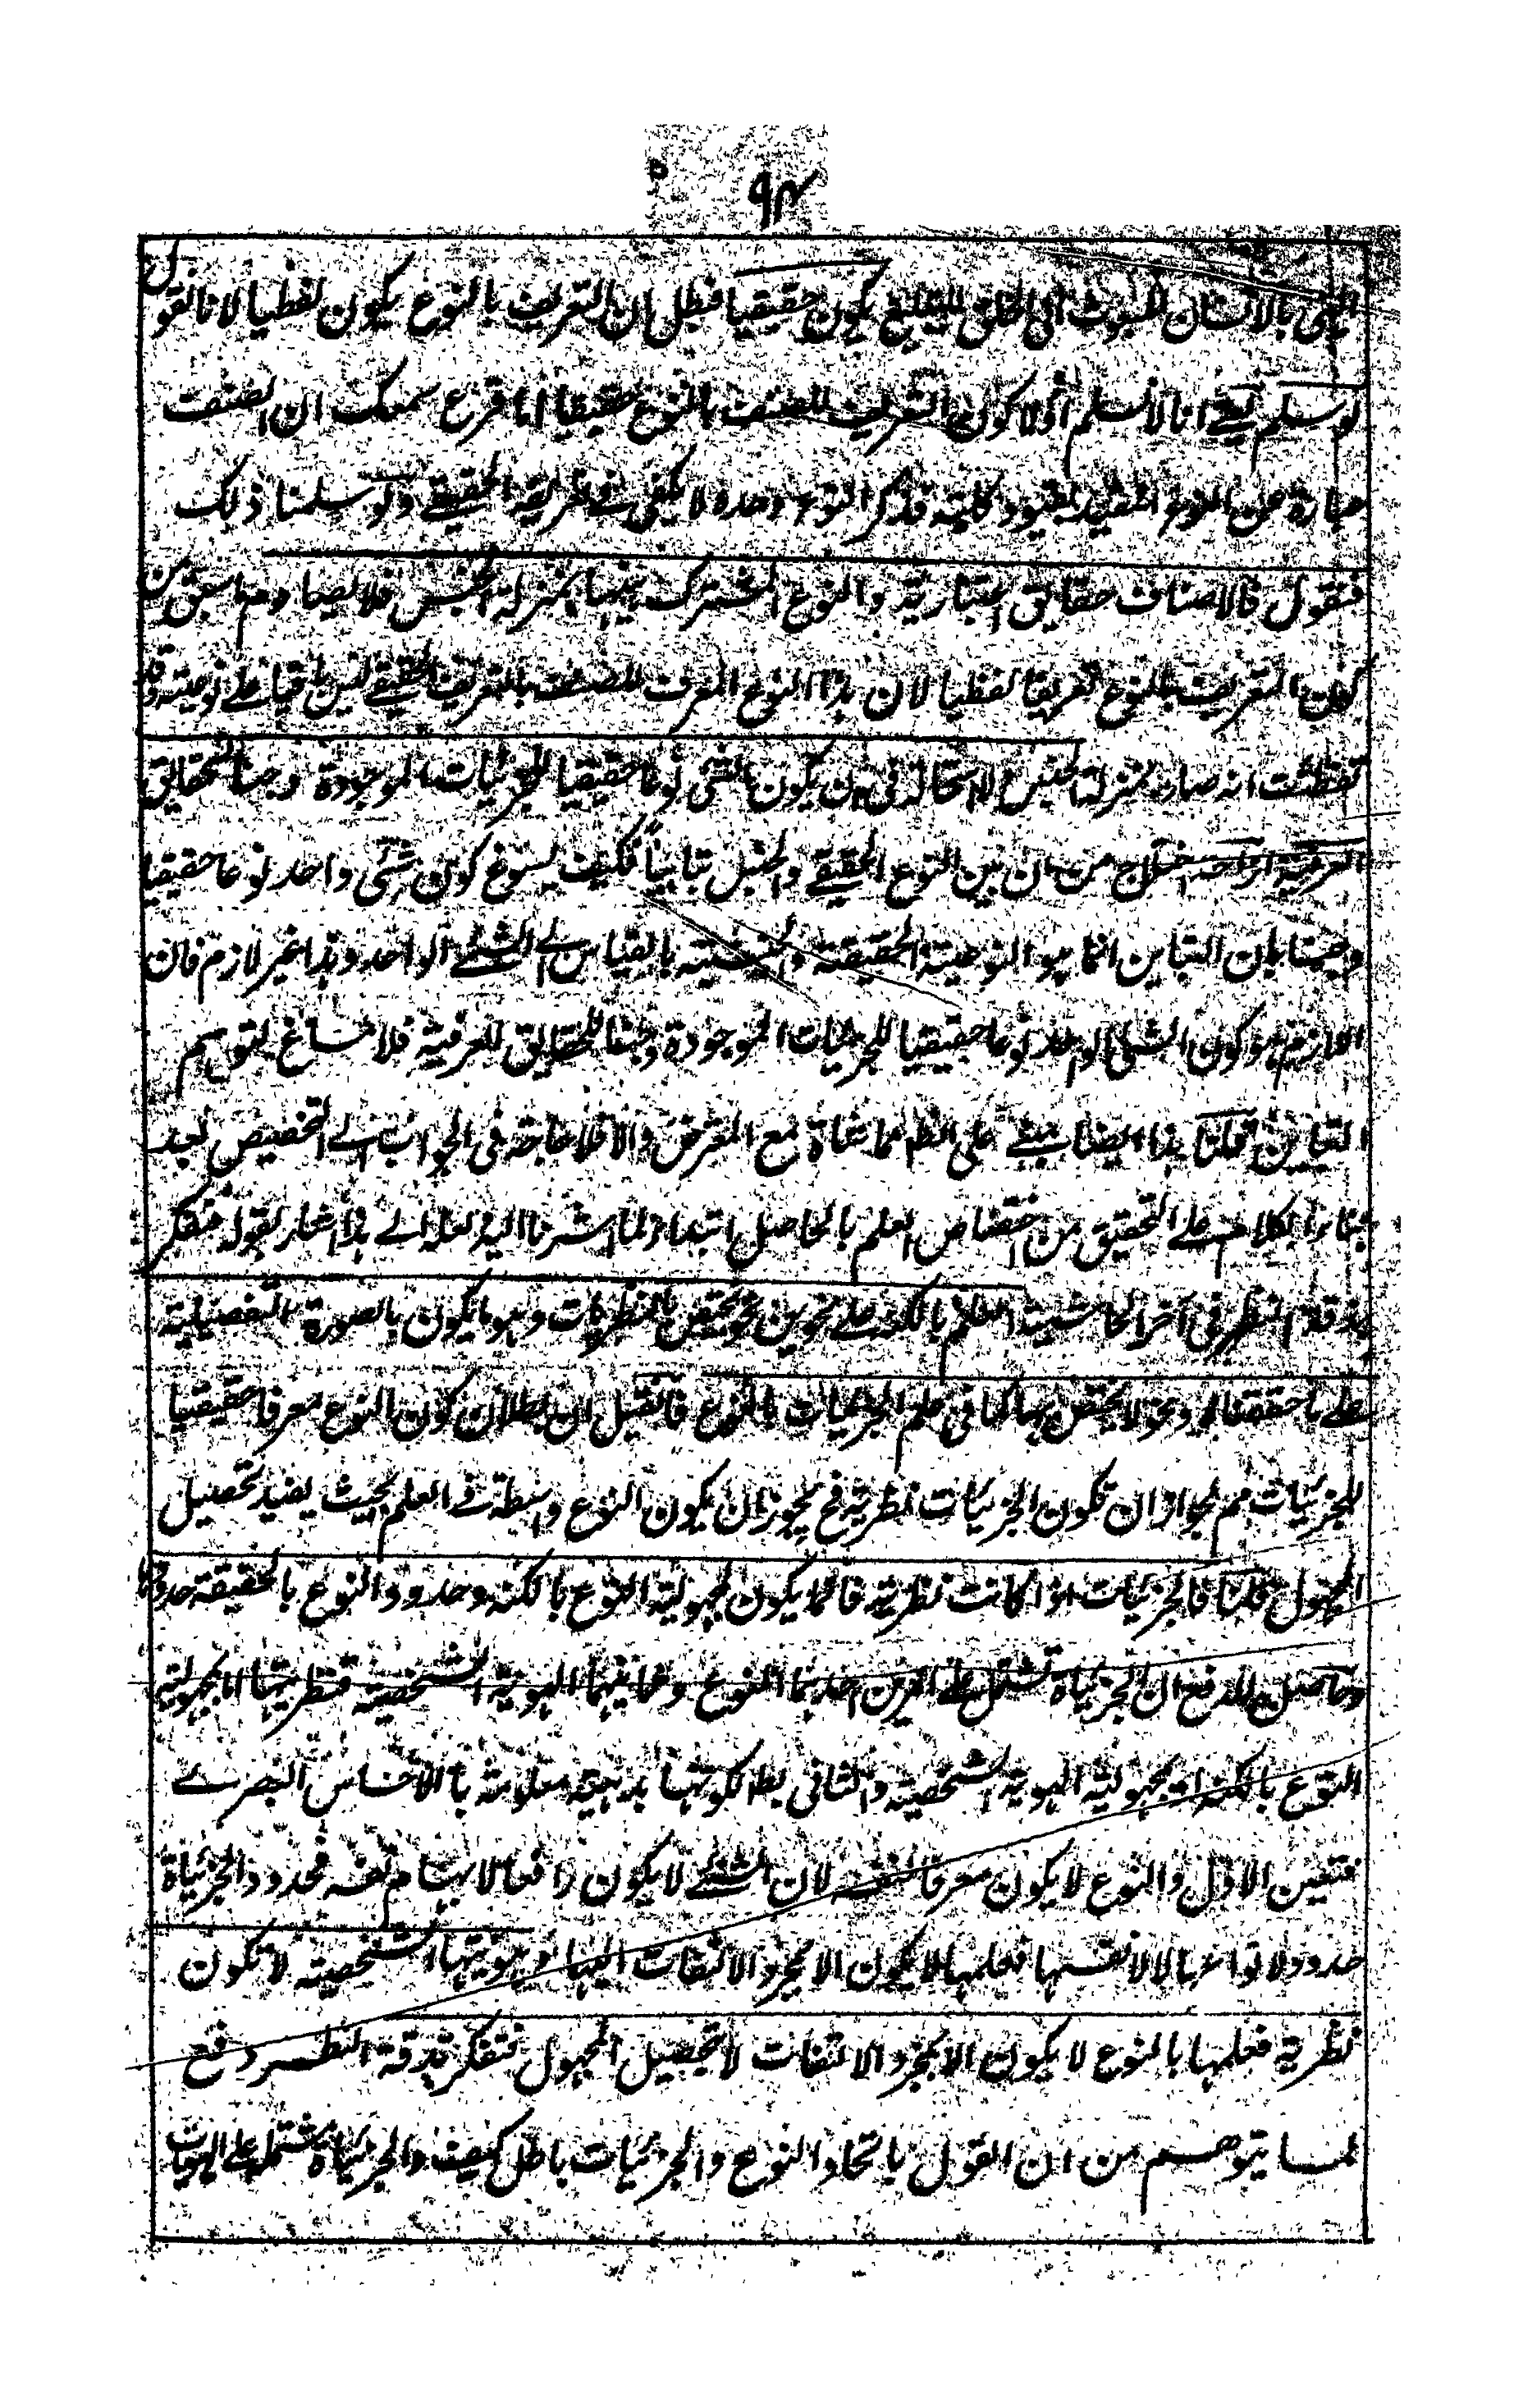 ٩٤
النبي بالانسان المبعوث الى الخلق للتبليغ يكون حقيقيا فبطل ان التعريف بالنوع يكون لفظيا لانا نقول
لو سلم يعنے انا لا نسلم اولا كون التعريف للصنف بالنوع حقيقيا اما قرع سمعك ان الصنف
عبارة عن النوع المقيد بقيود كلية فذكر النوع وحده لا يكفى فے تعريفه الحقيقے ولو سلمنا ذلك
فنقول فالاصناف حقايق اعتبارية والنوع المشترك بينها بمنزلة الجنس فلا يصادم ما سبق من
كون التعريف بالنوع تعريفا لفظيا لان هذا النوع المعرف للصنف بالتعريف الحقيقے ليس باقيا علے نوعيته وقد
تفطنت انه صار بمنزلة الجنس لاستحالة فى ان يكون الشئ نوعا حقيقيا للجزئيات الموجودة وجنسا للحقايق
العرفية ازاحة اختلاج من ان بين النوع الحقيقے والجنس تباينا فكيف يسوغ كون شئ واحد نوعا حقيقيا
وجنسا بان التباين انما هو النوعية الحقيقية والجنسية بالقياس الے الشئے الواحد وهذا غير لازم فان
اللازم هو كون الشئ الواحد نوعا حقيقيا للجزئيات الموجودة وجنسا للحقايق العرفية فلا مساغ لتوهم
التباين قلنا هذا ايضا مبنے على مماشاة مع المعترض والا فلا حاجة فى الجواب الے التخصيص بعد
بناء الكلام علے التحقيق من اختصاص العلم بالحاصل ابتداء كما اشرنا اليه ولعله الے هذا اشار بقوله فتفكر
بدقة النظر فى آخر الحاشية العلم بالكنه علے نحوين نحو يختص بالنظريات وهو ما يكون بالصورة التفصيلية
علے ما حققنا ونحو لا يختص بها كما فى علم الجزئيات بالنوع فالقيل ان بطلان كون النوع معرفا حقيقيا
للجزئيات مم لجواز ان تكون الجزئيات نظرية فح يجوز ان يكون النوع واسطة فے العلم بحيث يفيد تحصيل
المجهول قلنا فالجزئيات اذا كانت نظرية فانما يكون لمجهولية النوع بالكنه وحدود النوع بالحقيقة حدودها
وحاصل الدفع ان الجزئياة تشتمل علے امرين احدهما النوع وثانيهما الهوية الشخصية فنظريتها اما لمجهولية
النوع بالكنه او لمجهولية الهوية الشخصية والثانى بط لكونها بديهية معلومة بالاحساس البصرے
فتعين الاول والنوع لا يكون معرفا لنفسه لان الشئے لا يكون رافعا لابهام نفسه فحدود الجزئياة
حدود لانواعها لا لانفسها فعلمها لا يكون الا بمجرد الالتفات اليها وهويتها الشخصية لا تكون
نظرية فعلمها بالنوع لا يكون الا بمجرد الالتفات لا تحصيل المجهول فتفكر بدقة النظر دفع
لما يتوهم من ان القول باتحاد النوع والجزئيات باطل كيف والجزئياة مشتملة علے الهويات